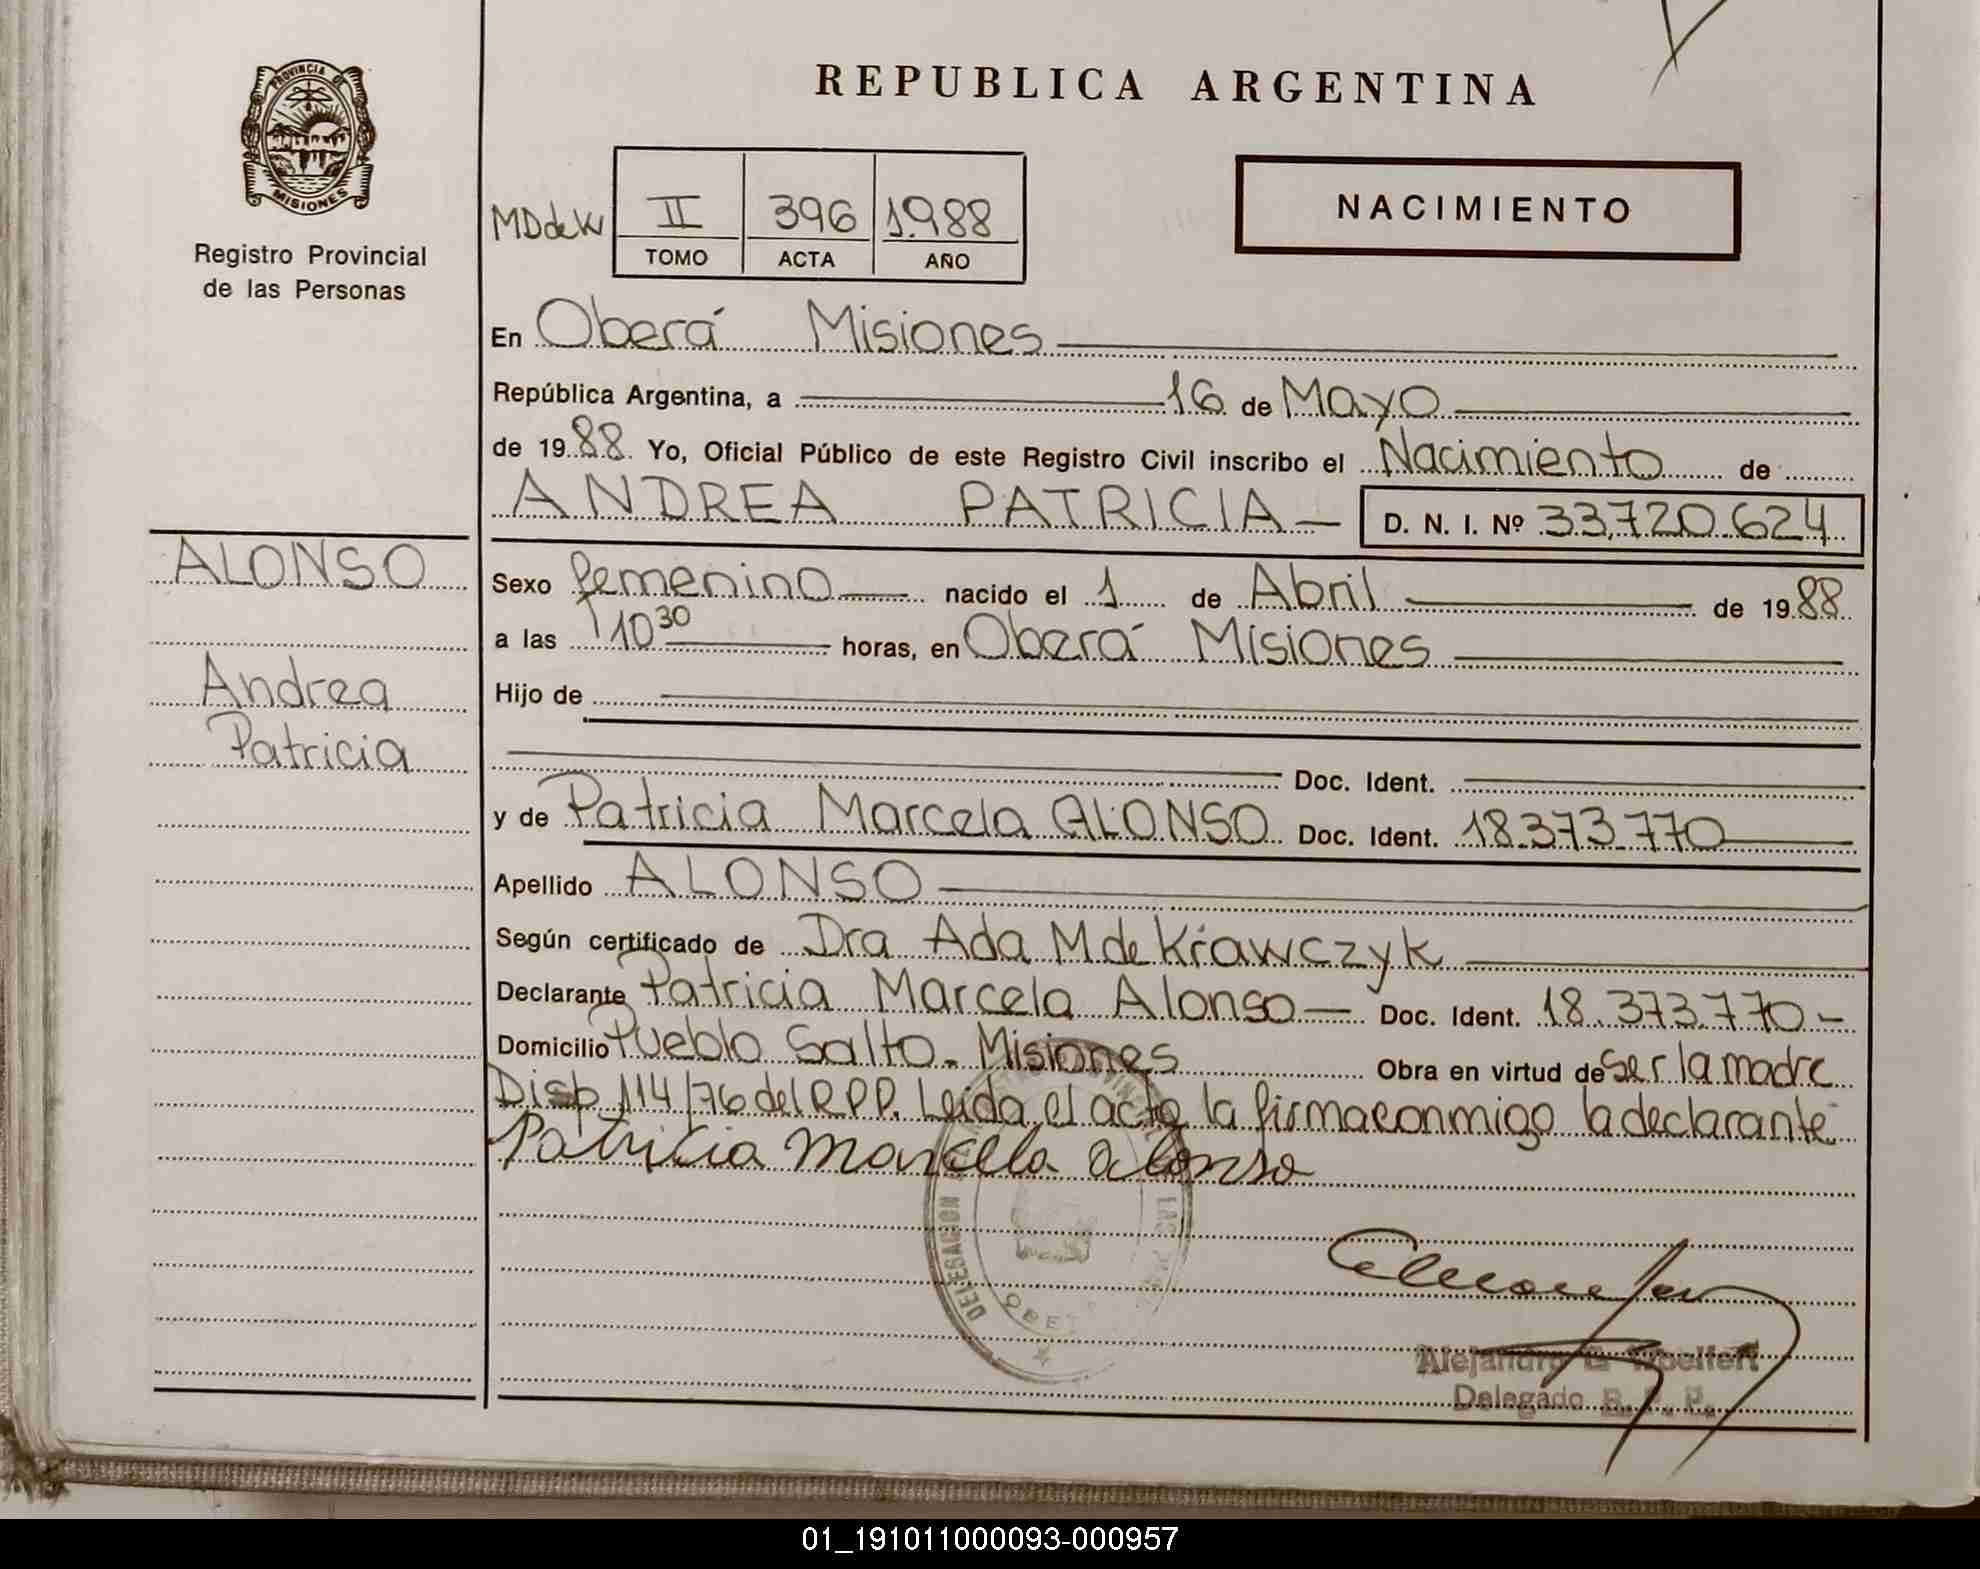 PROVINCIA DE
MISIONES
Registro Provincial
de las Personas
REPUBLICA ARGENTINA
NACIMIENTO
MDdeK II 396 1988
TOMO ACTA AÑO
En Oberá Misiones
República Argentina, a 16 de Mayo
de 1988 Yo, Oficial Público de este Registro Civil inscribo el Nacimiento de
ANDREA PATRICIA D. N. I. Nº 33.720.624
ALONSO
Andrea
Patricia
Sexo femenino nacido el 1 de Abril de 1988
a las 10 30 horas, en Oberá Misiones
Hijo de
Doc. Ident.
y de Patricia Marcela ALONSO Doc. Ident. 18.373.770
Apellido ALONSO
Según certificado de Dra Ada M de Krawczyk
Declarante Patricia Marcela Alonso Doc. Ident. 18.373.770
Domicilio Pueblo Salto - Misiones Obra en virtud de Ser la madre
Disp. 114/76 del R.P.P. Leida el acta la firma conmigo la declarante
Patricia Marcela Alonso
DELEGACION
LAS
Alejandro
Delegado R. P. P.
01_191011000093-000957